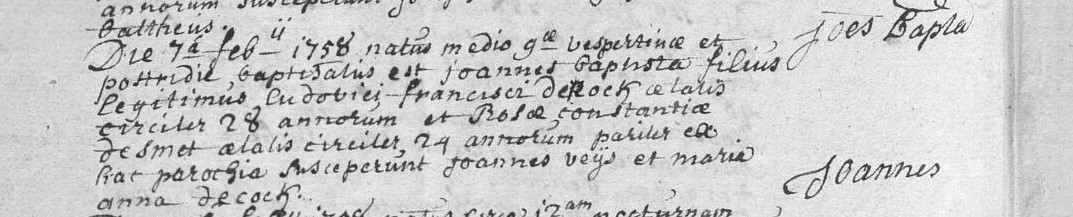 annorum susceperunt
baltheus.
Die 7a feb ii 1758 natus medio 9æ vespertinæ et
postridie baptisatus est joannes baptista filius
legitimus ludovici francisci decock ætatis
circiter 28 annorum et Rosæ constantiæ
desmet ætatis circiter 24 annorum pariter ex
hac parochia susceperunt joannes veijs et maria
anna decock.
joes Bapta
Joannes
1758 natus circa 12am nocturnam